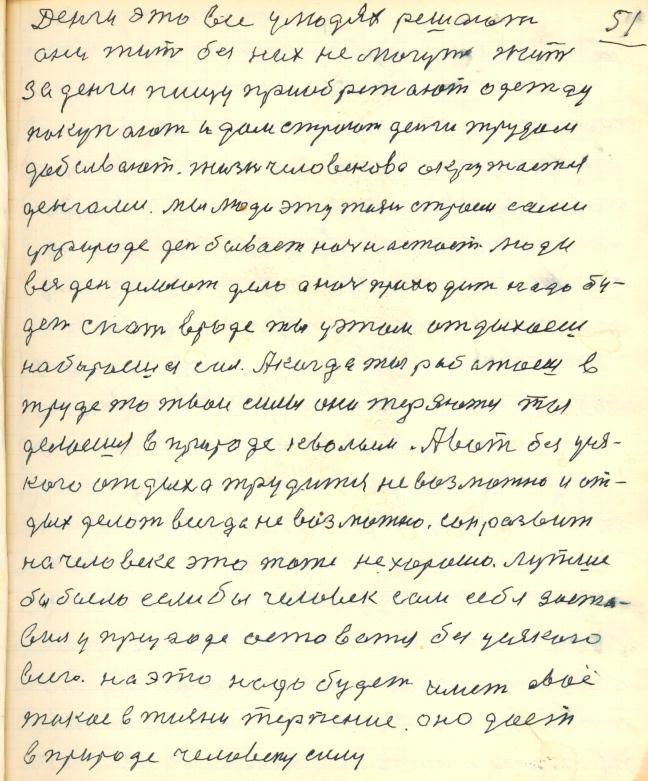 51
Денги это все у людях решают
они жит без них не могут жит
За денги пищу приобретают одежду
покупают и дом строют денги трудом
добывают. жизн человекова окружается
денгами. мы люди эту жизн строем сами
у природе ден бывает ноч настает люди
вея ден делают дело а ноч приходит надо бу-
дет спат вроде ты у этом отдыхаеш
набыраешся сил. А когда ты работаеш в
труде то твои силы они теряются ты
делаешся в природе кволым. А вот без уся-
кого отдыха трудится невозможно и от-
дых делат всегда не возможно. сон развит
на человеке это тоже не хорошо. Лутше
бы было если бы человек сам себя заста-
вил у природе остоватся без усякого
всего. на это надо будет имет своё
такое в жизни терпение. оно дает
в природе человеку силу